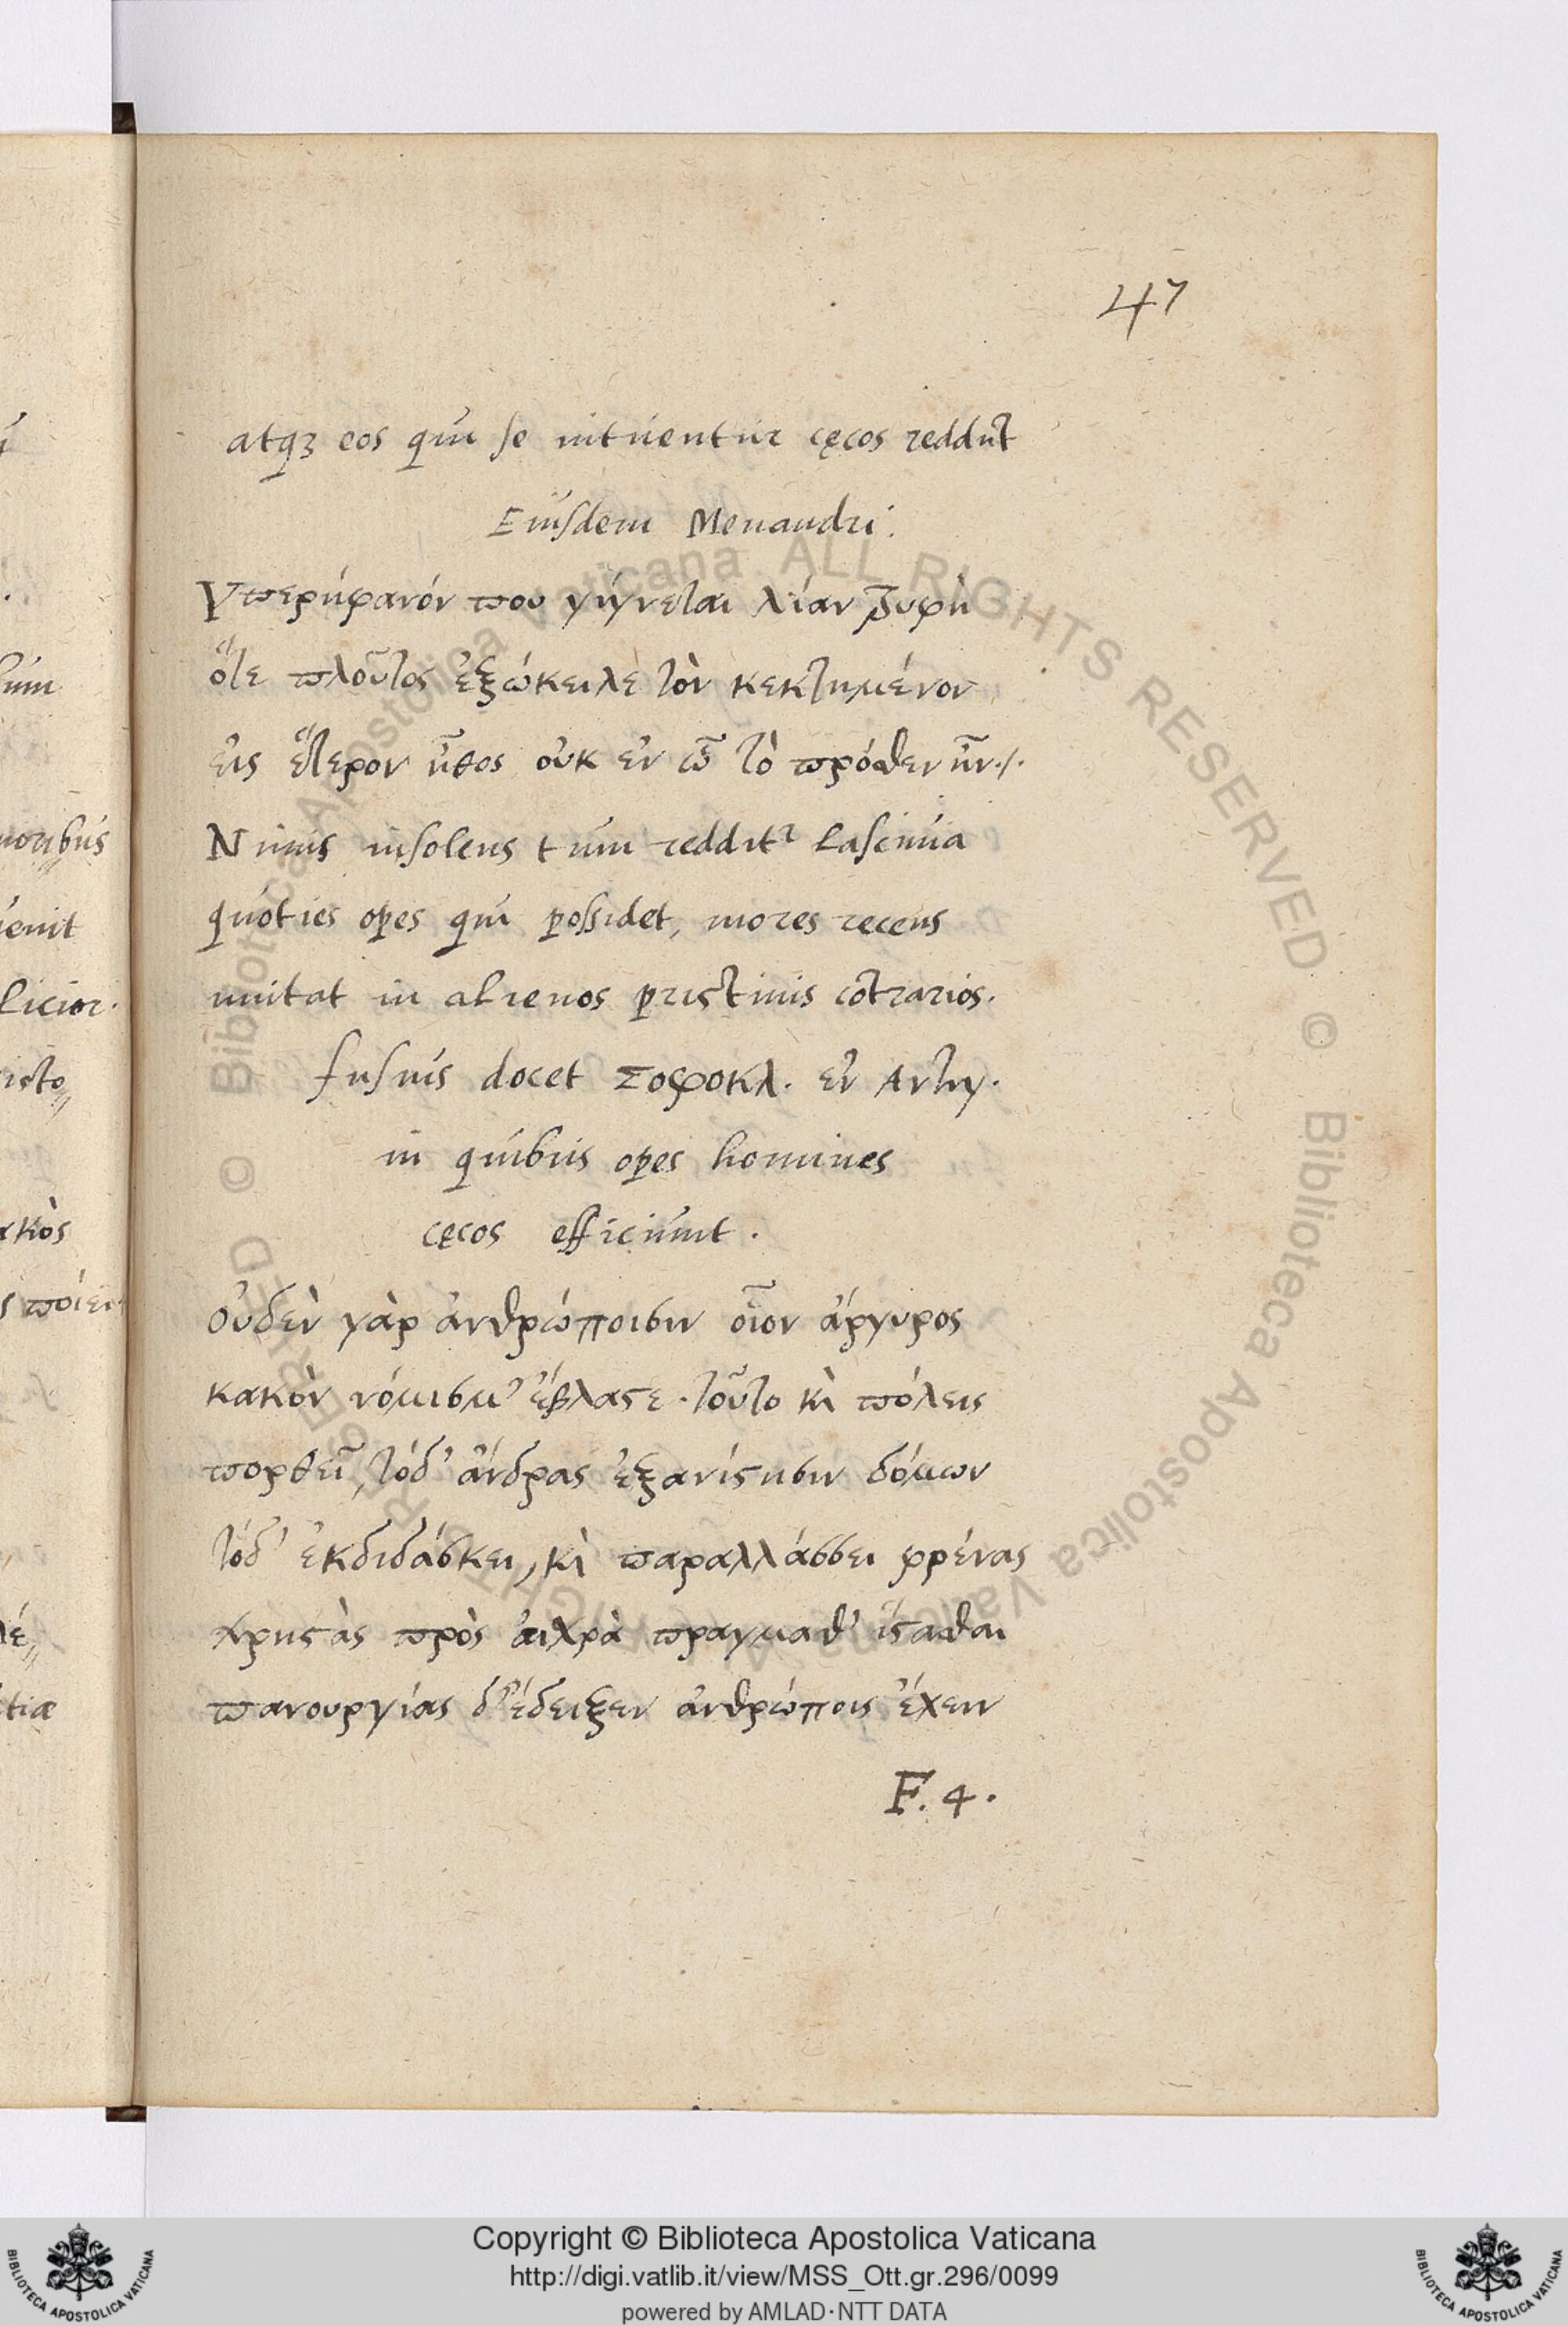 47
atqꝫ eos qui se intuentur cęcos reddũt
Eiusdem Menandri.
Ὑπερήφανόν που γίγνεται λίαν τρυφὴ
ὅτε πλοῦτος ἐξώκειλε τὸν κεκτημένον
εἰς ἕτερον ἦθος οὐκ ἐν ᾧ τὸ πρόσθεν ἦν./.
Nimis insolens tum redditᷣ lasciuia
quoties opes qui possidet, mores recens
mutat in alienos pristinis cōtrarios.
fusius docet Σοφοκλ. ἐν Αντιγ.
in quibus opes homines
cęcos efficiunt.
οὐδὲν γὰρ ἀνθρώποισιν οἷον ἄργυρος
κακὸν νόμισμ’ ἔβλαστε. τοῦτο κὶ πόλεις
πορθεῖ, τόδ’ ἄνδρας ἐξανίστησιν δόμων
τόδ’ ἐκδιδάσκει, κὶ παραλλάσσει φρένας
χρηστὰς πρὸς αἰσχρὰ πραγμαθ’ ἵστασθαι
πανουργίας δ’ ἔδειξεν ἀνθρώποις ἔχειν
F. 4.
licior.
ακὸς
ς ποιει
tiæ
© Biblioteca Apostolica Vaticana ALL RIGHTS RESERVED © Biblioteca Apostolica Vaticana ALL RIGHTS RESERVED
Copyright © Biblioteca Apostolica Vaticana
http://digi.vatlib.it/view/MSS_Ott.gr.296/0099
powered by AMLAD·NTT DATA
BIBLIOTECA APOSTOLICA VATICANA
BIBLIOTECA APOSTOLICA VATICANA